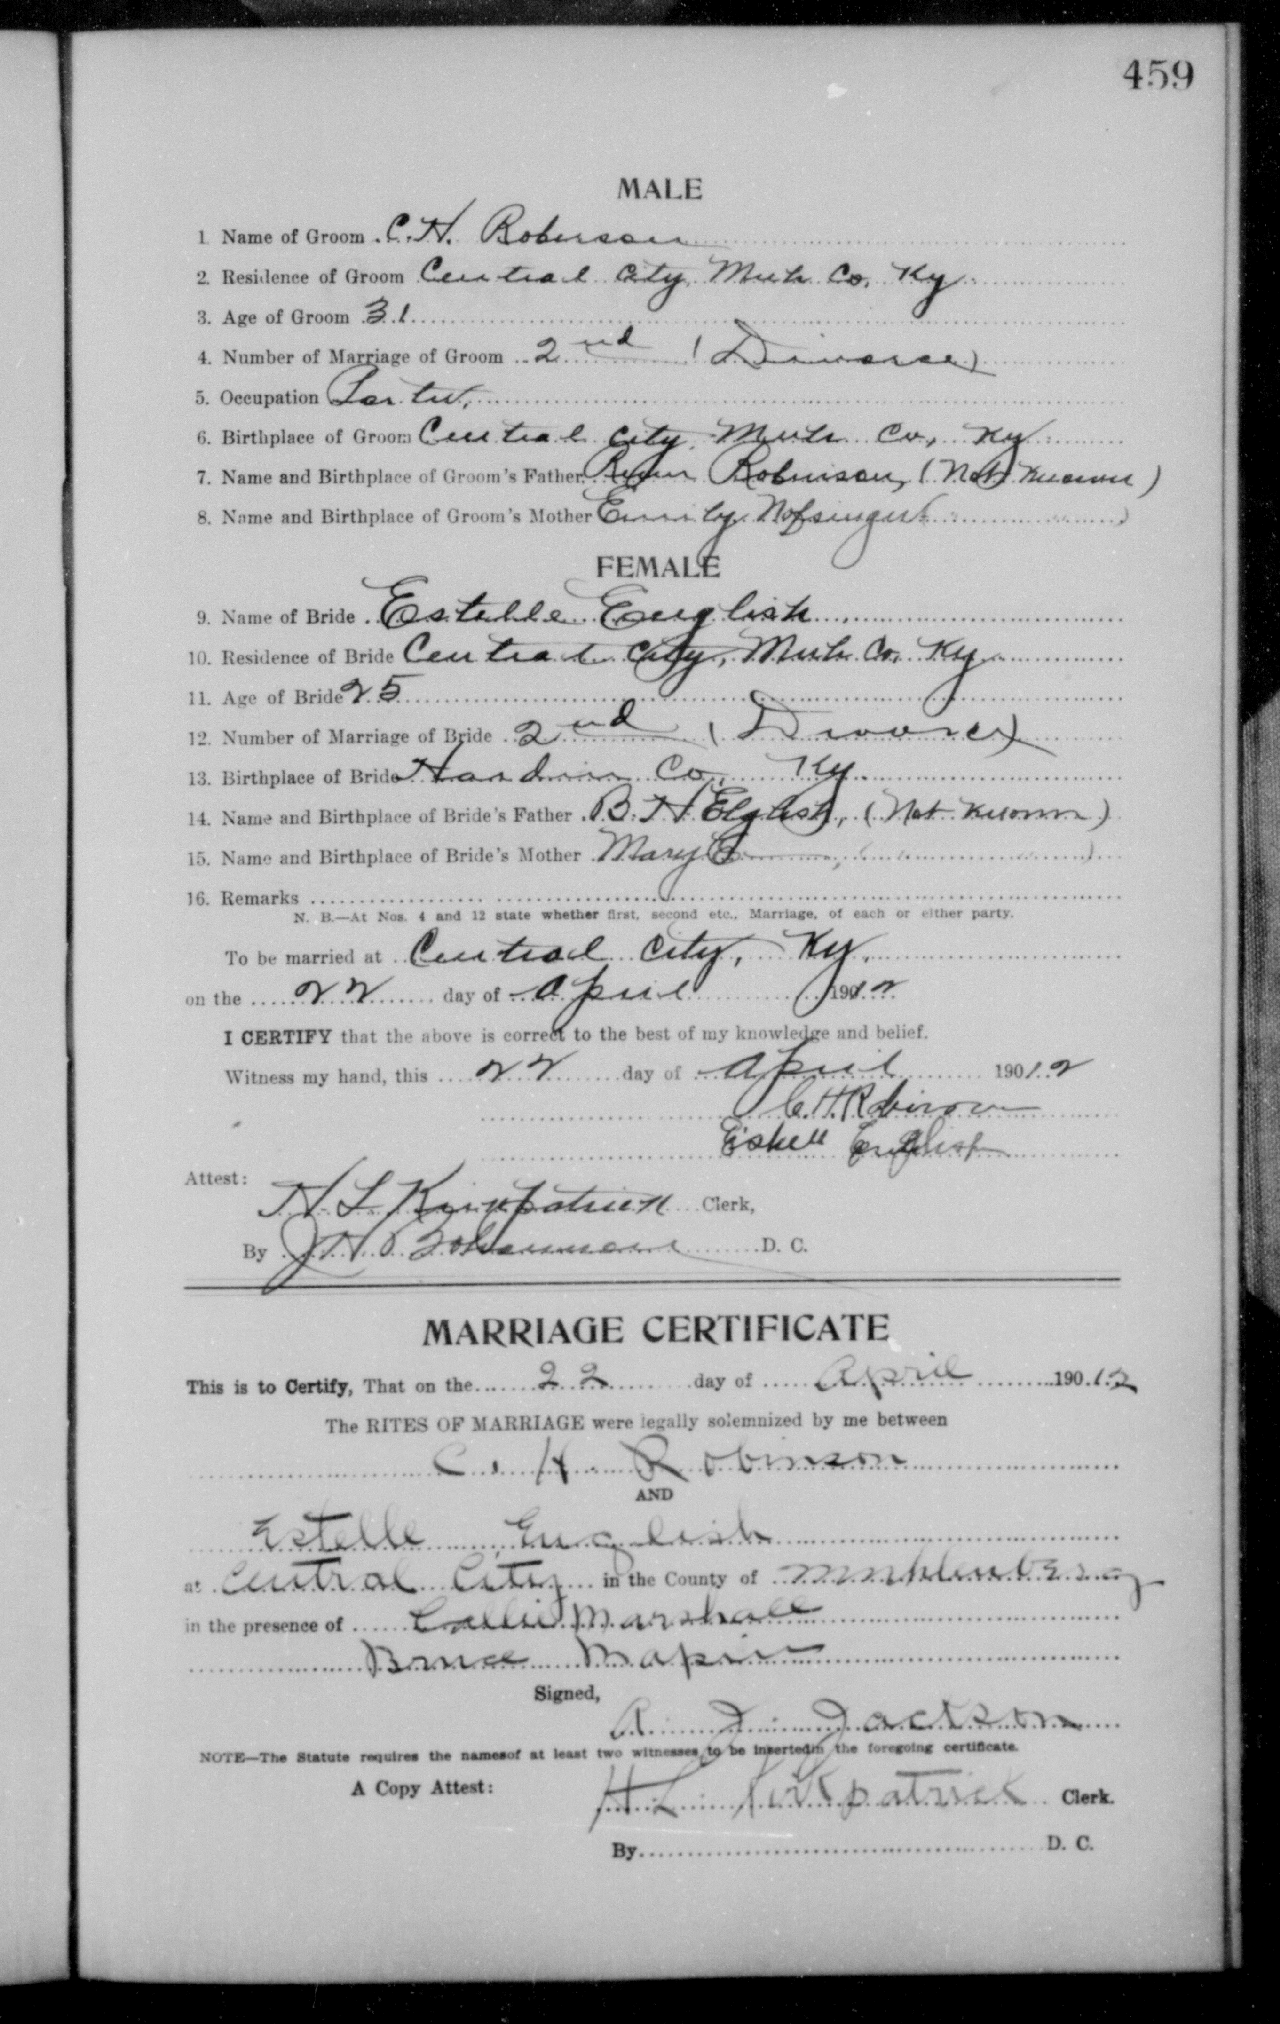 459
MALE
1 Name of Groom C. H. Robinson
2. Residence of Groom Central City, Muh Co, Ky
3. Age of Groom 31
4. Number of Marriage of Groom 2nd (Divorce)
5. Occupation Porter,
6. Birthplace of Groom Central City, Muh Co, Ky
7. Name and Birthplace of Groom's Father Robinson, (Not Known)
8. Name and Birthplace of Groom's Mother Emily Nofsinger ( )
FEMALE
9. Name of Bride Estelle English
10. Residence of Bride Central City, Muh Co, Ky
11. Age of Bride 25
12. Number of Marriage of Bride 2nd (Divorce)
13. Birthplace of Bride Hardin Co, Ky
14. Name and Birthplace of Bride's Father B. H Elglish, (Not Known)
15. Name and Birthplace of Bride's Mother Mary E
16. Remarks
N. B.—At Nos. 4 and 12 state whether first, second etc., Marriage, of each or either party.
To be married at Central City, Ky,
on the 22 day of April 19012
I CERTIFY that the above is correct to the best of my knowledge and belief.
Witness my hand, this 22 day of April 19012
C. H. Robinson
Estell English
Attest:
H L Kirkpatrick Clerk,
By J H Bohannan D. C.
MARRIAGE CERTIFICATE
This is to Certify, That on the 22 day of April 19012
The RITES OF MARRIAGE were legally solemnized by me between
C. H. Robinson
AND
Estelle English
at Central City in the County of Muhlenberg
in the presence of Callie Marshall
Bruce
Signed,
A. J. Jackson
NOTE—The Statute requires the namesof at least two witnesses to be insertedin the foregoing certificate.
A Copy Attest: H L Kirkpatrick Clerk.
By D. C.